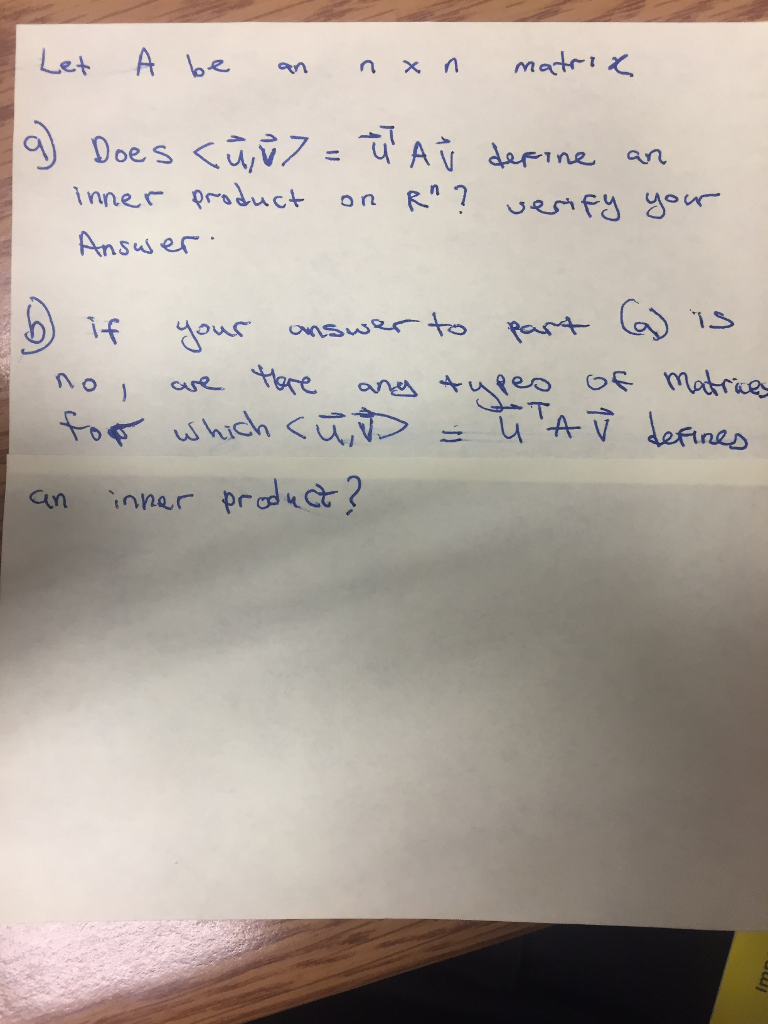 Let A be an n x n matrix
a) Does <u⃗,v⃗> = u⃗ᵀ A v⃗ define an
inner product on Rⁿ? verify your
Answer.
b) if your answer to part (a) is
no, are there any types of matrices
for which <u⃗,v⃗> = u⃗ᵀ A v⃗ defines
an inner product?